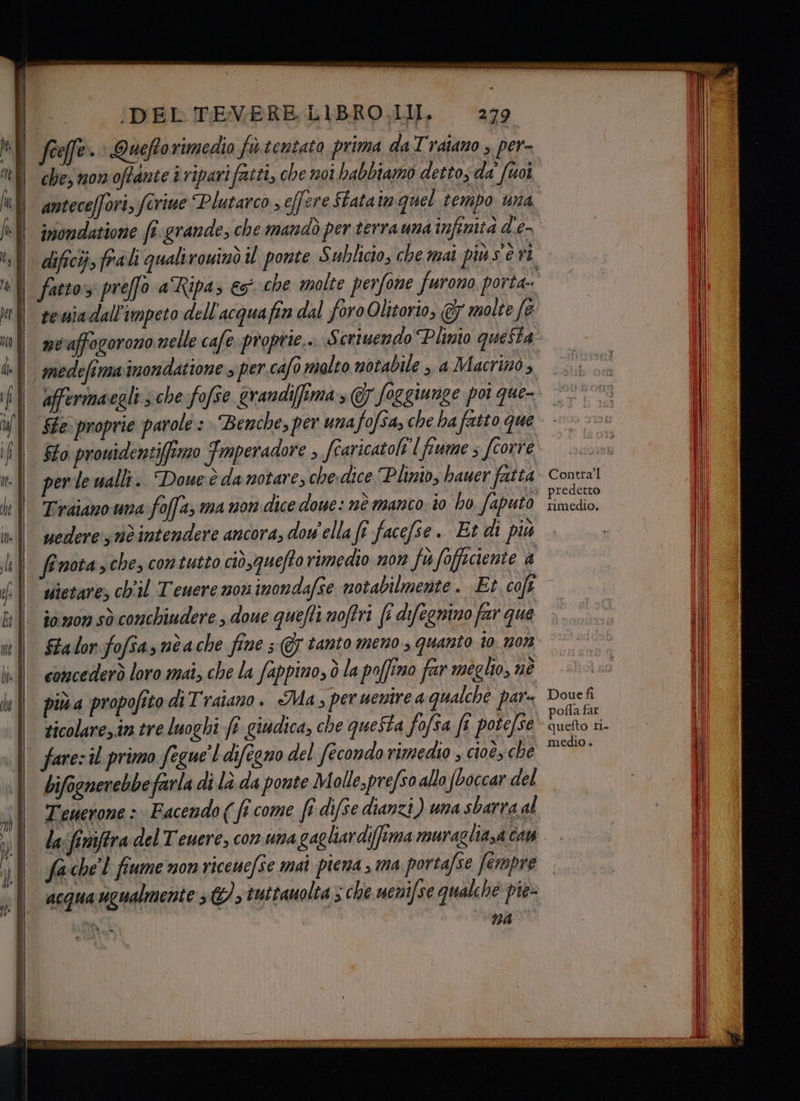 DEL TEVERE LIBRO III. 279
sceſſe. Queſto rimedio fù tentato prima da Traiano, per-
che, non oſtante i ripari fatti, che noi habbiamo detto, da ſuoi
anteceſſori, ſcriue Plutarco, eſſere ſtata in quel tempo una
inondatione ſi grande, che mandò per terra una infinità d'e-
dificij, fra li quali rouinò il ponte Sublicio, che mai più s'è ri
fatto, preſſo a Ripa, & che molte perſone furono porta-
te uia dall'impeto dell'acqua fin dal foro Olitorio, & molte ſe
ne affogorono nelle caſe proprie. Scriuendo Plinio queſta
medeſima inondatione, per caſo molto notabile, a Macrinò,
afferma egli, che foſse grandiſſima, & ſoggiunge poi que-
ſte proprie parole: Benche, per una foſsa, che ha fatto que
ſto prouidentiſſimo Imperadore, ſcaricatoſi 'l fiume, ſcorre
per le ualli. Doue è da notare, che dice Plinio, hauer fatta
Traiano una foſſa, ma non dice doue: nè manco io ho ſaputo
uedere, nè intendere ancora, dou'ella ſi faceſse. Et di più
ſi nota, che, con tutto ciò, queſto rimedio non fù ſofficiente a
uietare, ch'il Teuere non inondaſse notabilmente. Et coſi
io non sò conchiudere, doue queſti noſtri ſi diſegnino far que
ſta lor foſsa, nè a che fine; & tanto meno, quanto io non
concederò loro mai, che la ſappino, ò la poſſino far meglio, nè
più a propoſito di Traiano. Ma, per uenire a qualche par-
ticolare, in tre luoghi ſi giudica, che queſta foſsa ſi poteſse
fare: il primo ſegue'l diſegno del ſecondo rimedio, cioè, che
biſognerebbe farla di là da ponte Molle, preſso allo sboccar del
Teuerone: Facendo (ſi come ſi diſse dianzi) una sbarra al
la ſiniſtra del Teuere, con una gagliardiſſima muraglia, a cau
ſa che'l fiume non riceueſse mai piena, ma portaſse ſempre
acqua ugualmente; &, tuttauolta; che ueniſse qualche pie-
na
Contra'l
predetto
rimedio.
Doue ſi
poſſa far
queſto ri-
medio.